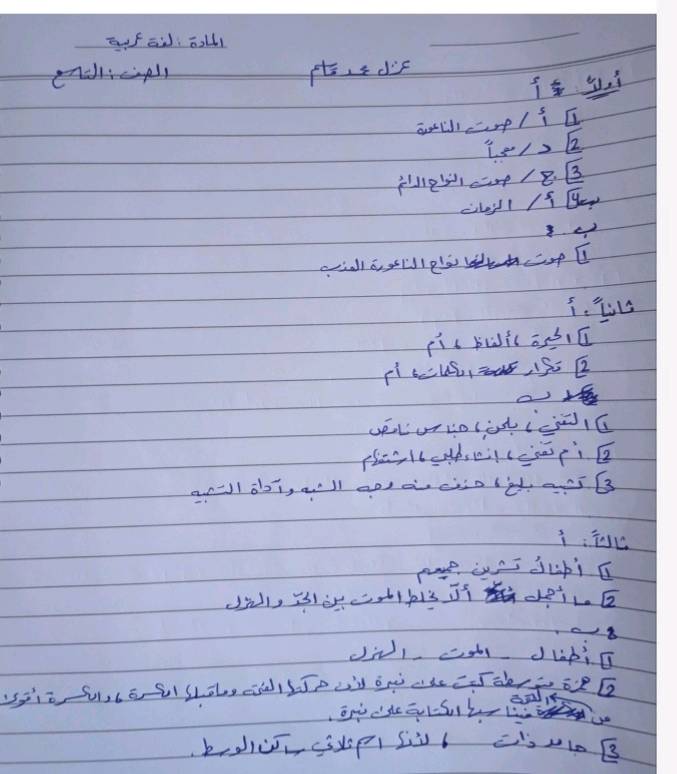 المادة: لغة عربية
غزل محمد قاسم الصف: التاسع
أولاً: أ
1 أ/ صوت الناعورة
2 د/ معجباً
3 ج/ صوت النواح الدائم
4 أ/ الزمان
ب
1 صوت نواح الناعورة العذب
ثانياً: أ
1 الحيرة، ألفاظ، أم
2 تكرار الكلمات، أم
ب
1 التغني، بلحن، جناس ناقص
2 أم تغني، إنشاء طلبي، استفهام
3 تشبيه بليغ، حذف منه وجه الشبه وأداة التشبيه
ثالثاً: أ
1 أطفال تشرين جميعهم
2 ما أجمل ألّا يخلط الموت بين الجدّ والهزل
ب
1 أطفال - الموت - الهزل
2 همزة متوسطة كتبت على نبرة لأن حركتها الفتحة وما قبلها الكسرة، والكسرة أقوى
من الفتحة فيناسبها الكتابة على نبرة.
3 جامد ذات، لأنها اسم ثلاثي ساكن الوسط.